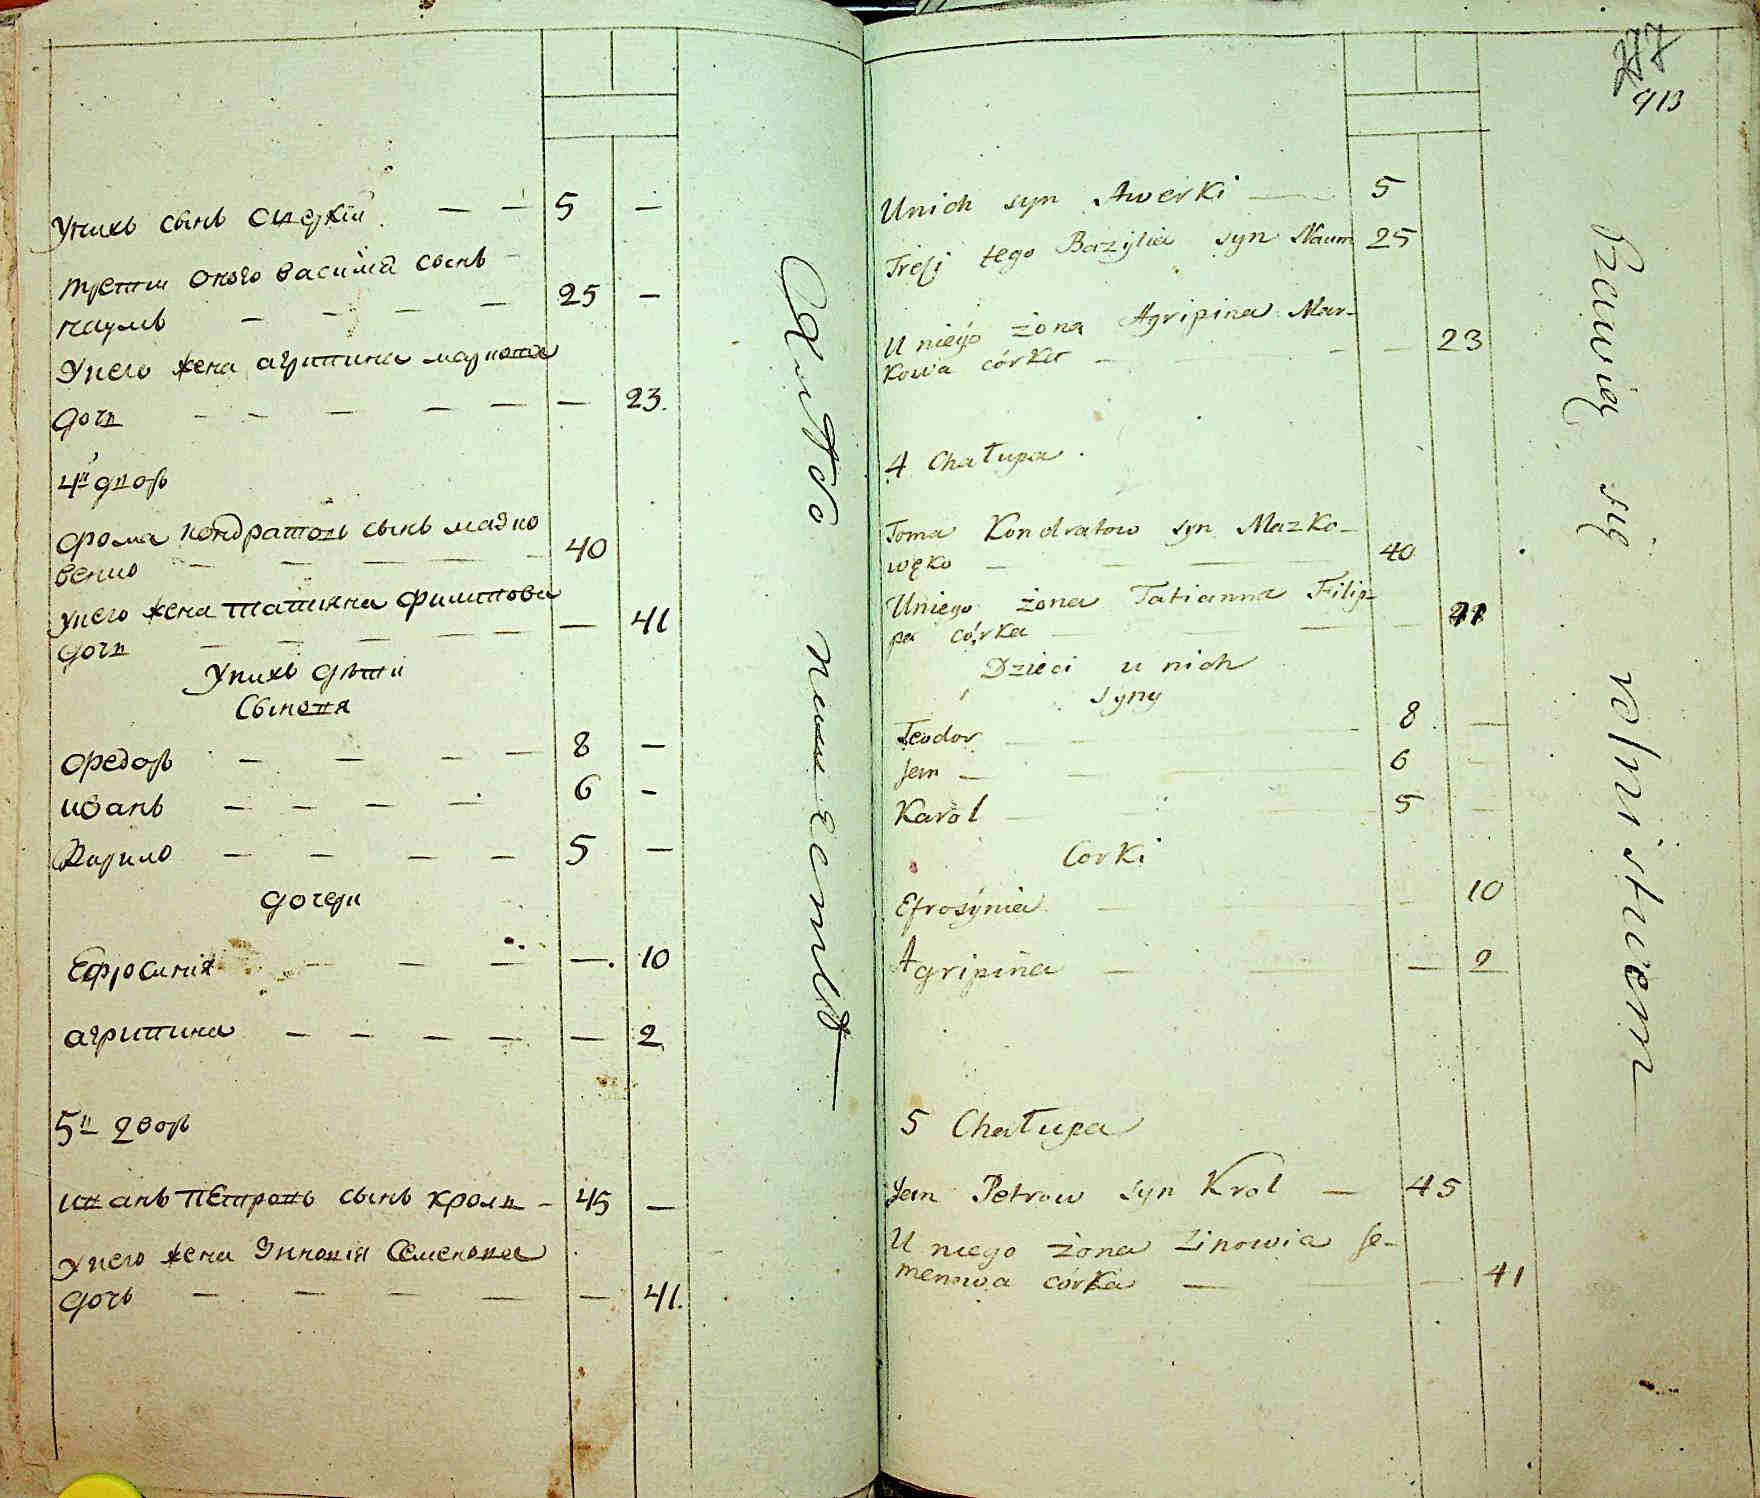 унихъ сынъ Аверкий — — 5 —
третии оного василия сынъ
наумъ — — — — 25 —
унего жена агрипина маркова
дочь — — — — — — 23.
4й дворъ
фома кондратовъ сынъ мазко
венко — — — — 40
унего жена татияна филипова
дочь — — — — — — 41
унихъ дѣти
Сыновя
федоръ — — — — 8 —
иванъ — — — — 6 —
Кирило — — — — 5 —
дочери
Ефросиния — — — — 10
агрипина — — — — — 2
5й дворъ
иванъ петровъ сынъ кроль — 45 —
унего жена Зиновия Семенова
дочь — — — — — 41.
277
913
Unich syn Awerki — 5
Treſi tego Bazylia syn Naum 25
U niego żona Agripina Mar-
kowa córka — — — 23
4 Chałupa.
Toma Kondratow syn Mazko-
węko — — — 40
Uniego żona Tatianna Filip-
pa córka — — — 41
Dzieci u nich
syny
Teodor — — 8 —
Jan — — 6 —
Karol — — 5 —
Corki
Efrosynia — — 10
Agripina — — — 2
5 Chałupa
Jan Petrow syn Krol — 45
U niego żona Zinowia Se-
menowa córka — — 41
Bawią się rolnistwem